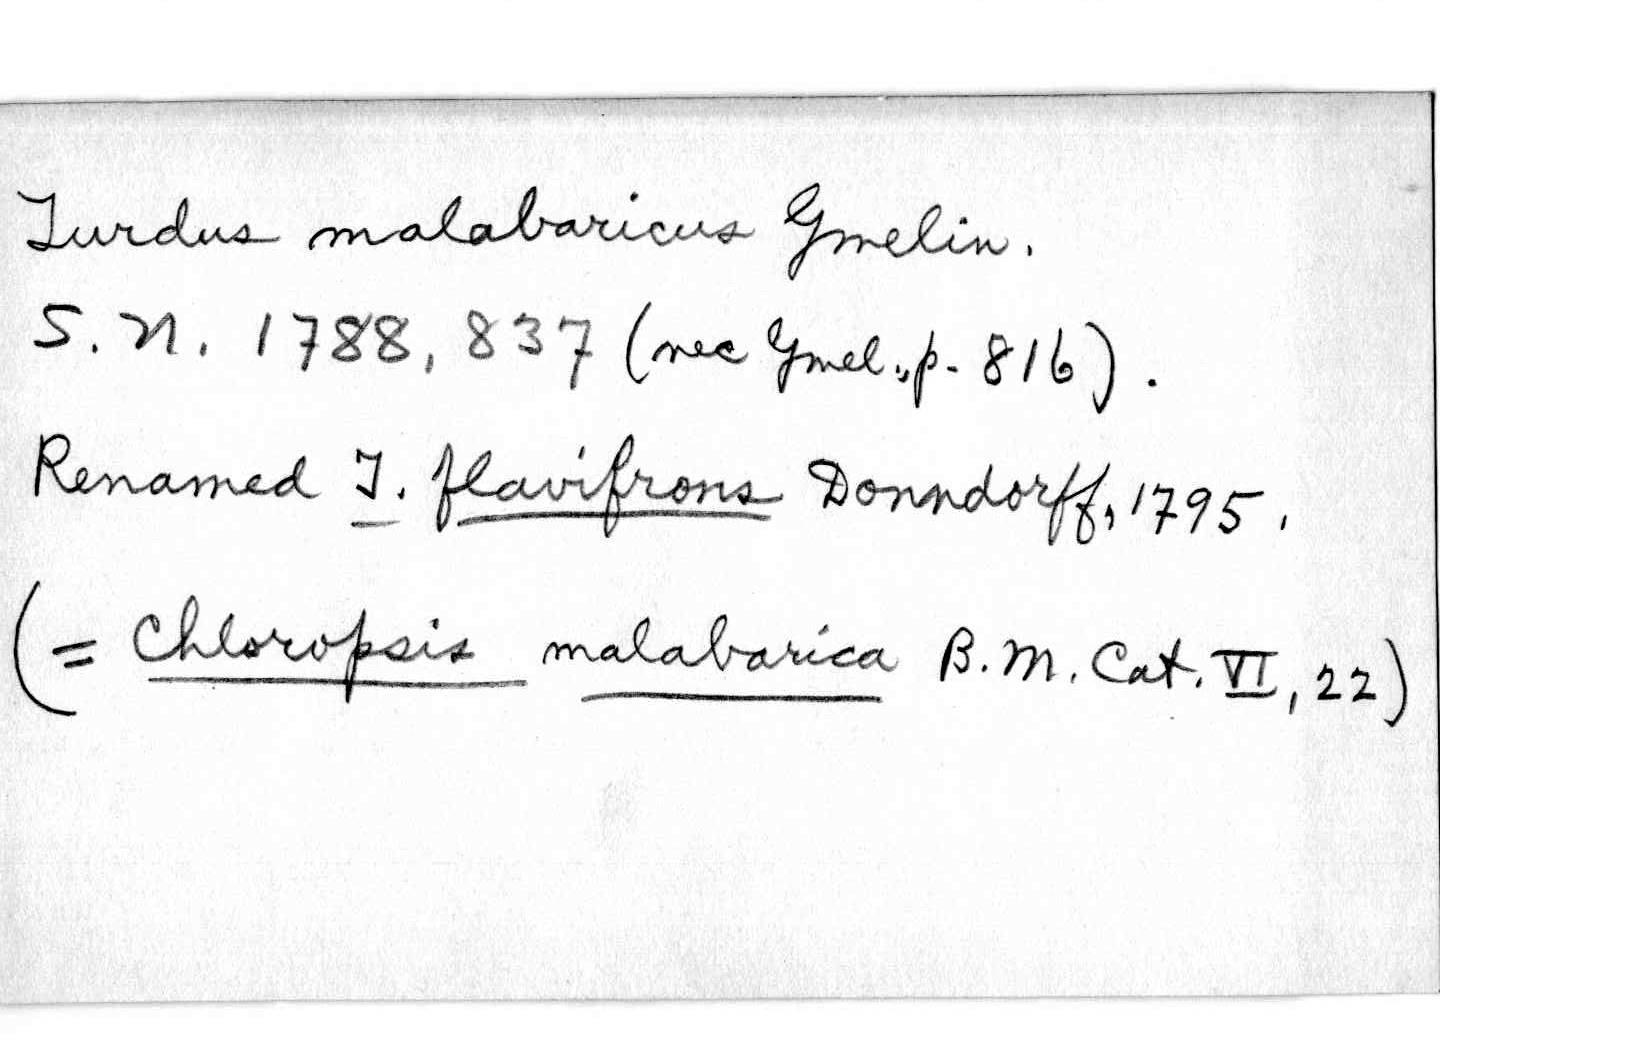 Turdus malabaricus Gmelin.
S. N. 1788, 837 (nec Gmel., p. 816).
Renamed T. flavifrons Donndorff, 1795.
(= Chloropsis malabarica B. M. Cat. VI, 22)